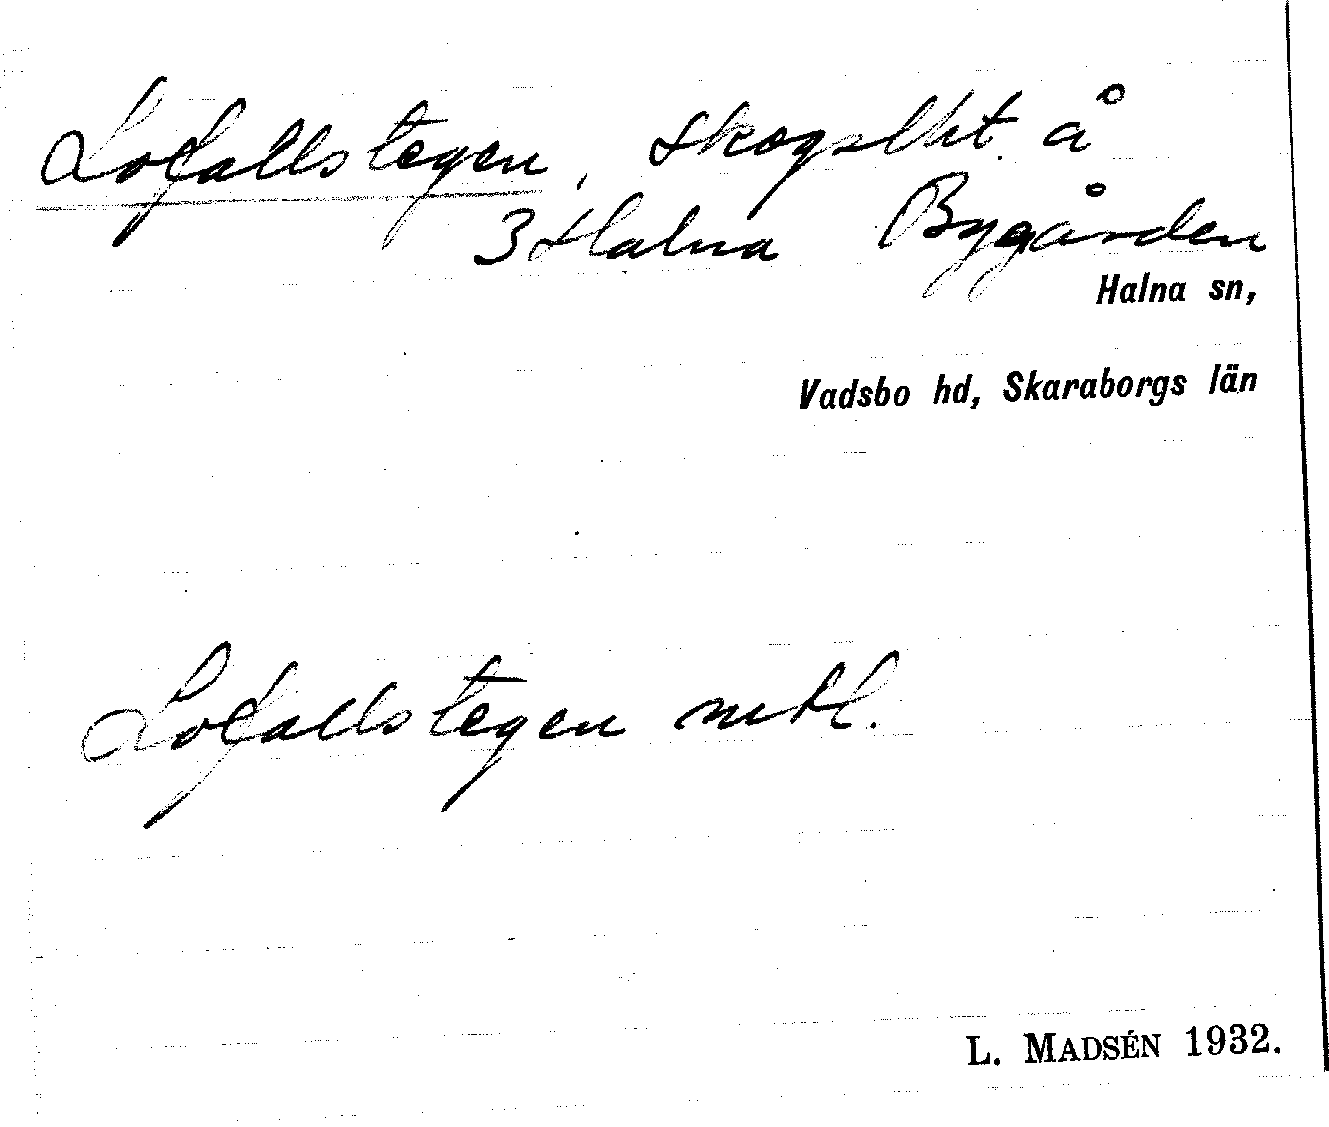 Lofallstegen, skogslht. å
3 Halna Bygården
Halna sn,
Vadsbo hd, Skaraborgs län
Lofallstegen mtl.
L. MADSÉN 1932.